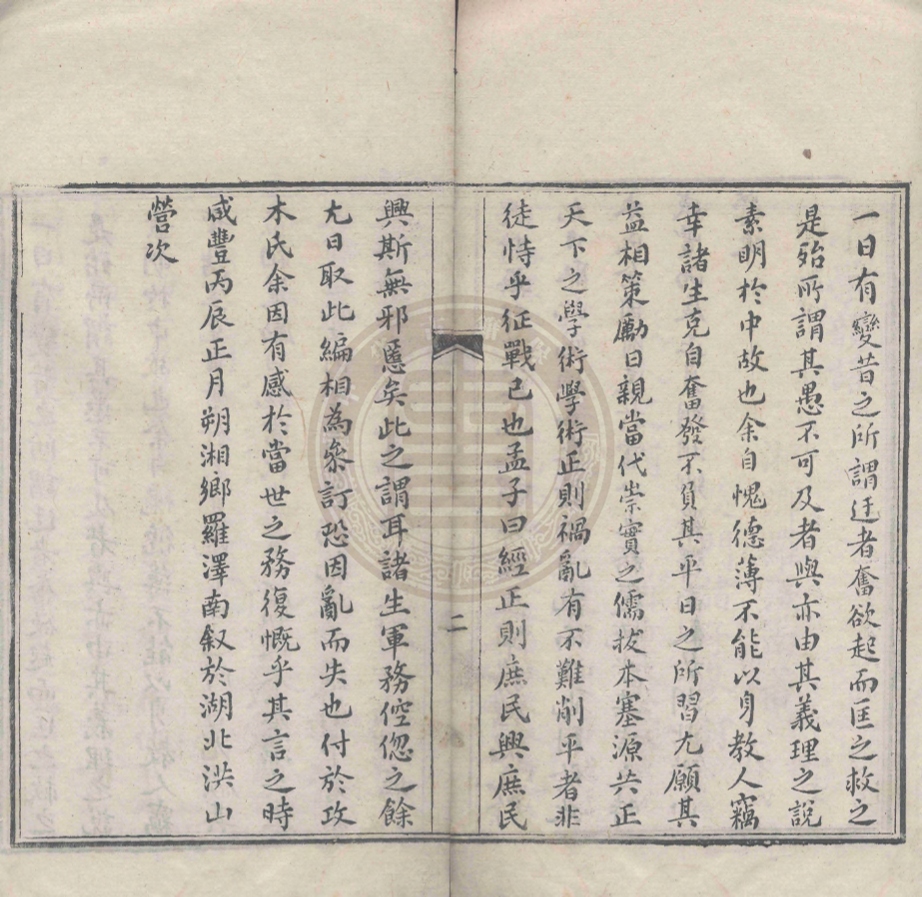 一日有變昔之所謂迂者奮欲起而匡之救之
是殆所謂其愚不可及者與亦由其義理之說
素明於中故也余自愧德薄不能以身教人竊
幸諸生克自奮發不負其平日之所習尤願其
益相策勵日親當代崇實之儒拔本塞源共正
天下之學術學術正則禍亂有不難削平者非
徒恃乎征戰已也孟子曰經正則庶民興庶民
二
興斯無邪慝矣此之謂耳諸生軍務倥偬之餘
尤日取此編相為參訂恐因亂而失也付於攻
木氏余因有感於當世之務復慨乎其言之時
咸豐丙辰正月朔湘鄉羅澤南叙於湖北洪山
營次